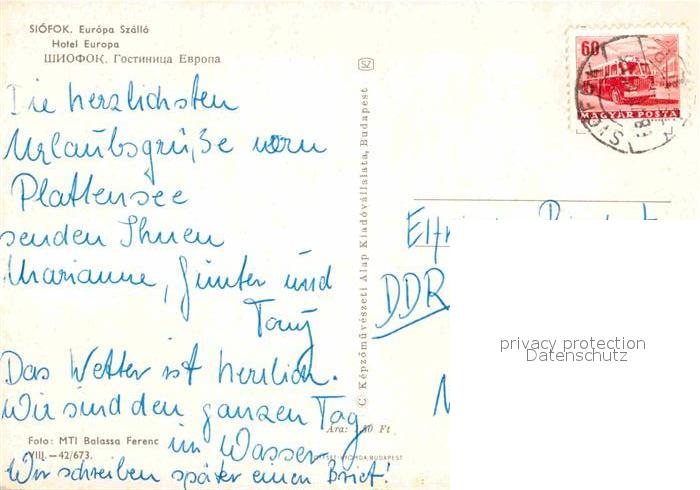 SIÓFOK. Európa Szálló
Hotel Europa
ШИОФОК. Гостиница Европа
Die herzlichsten
Urlaubsgrüße vom
Plattensee
senden Ihnen
Marianne, Günter und
Tony
Das Wetter ist herrlich.
Wir sind den ganzen Tag
im Wasser
Wir schreiben später einen Brief!
Foto: MTI Balassa Ferenc
VIII.—42/673.
Ára: 1,80 Ft
OFFSET-NYOMDA, BUDAPEST
SZ
C Képzőművészeti Alap Kiadóvállalata, Budapest
60
MAGYAR POSTA
SIÓFOK
DDR
privacy protection
Datenschutz